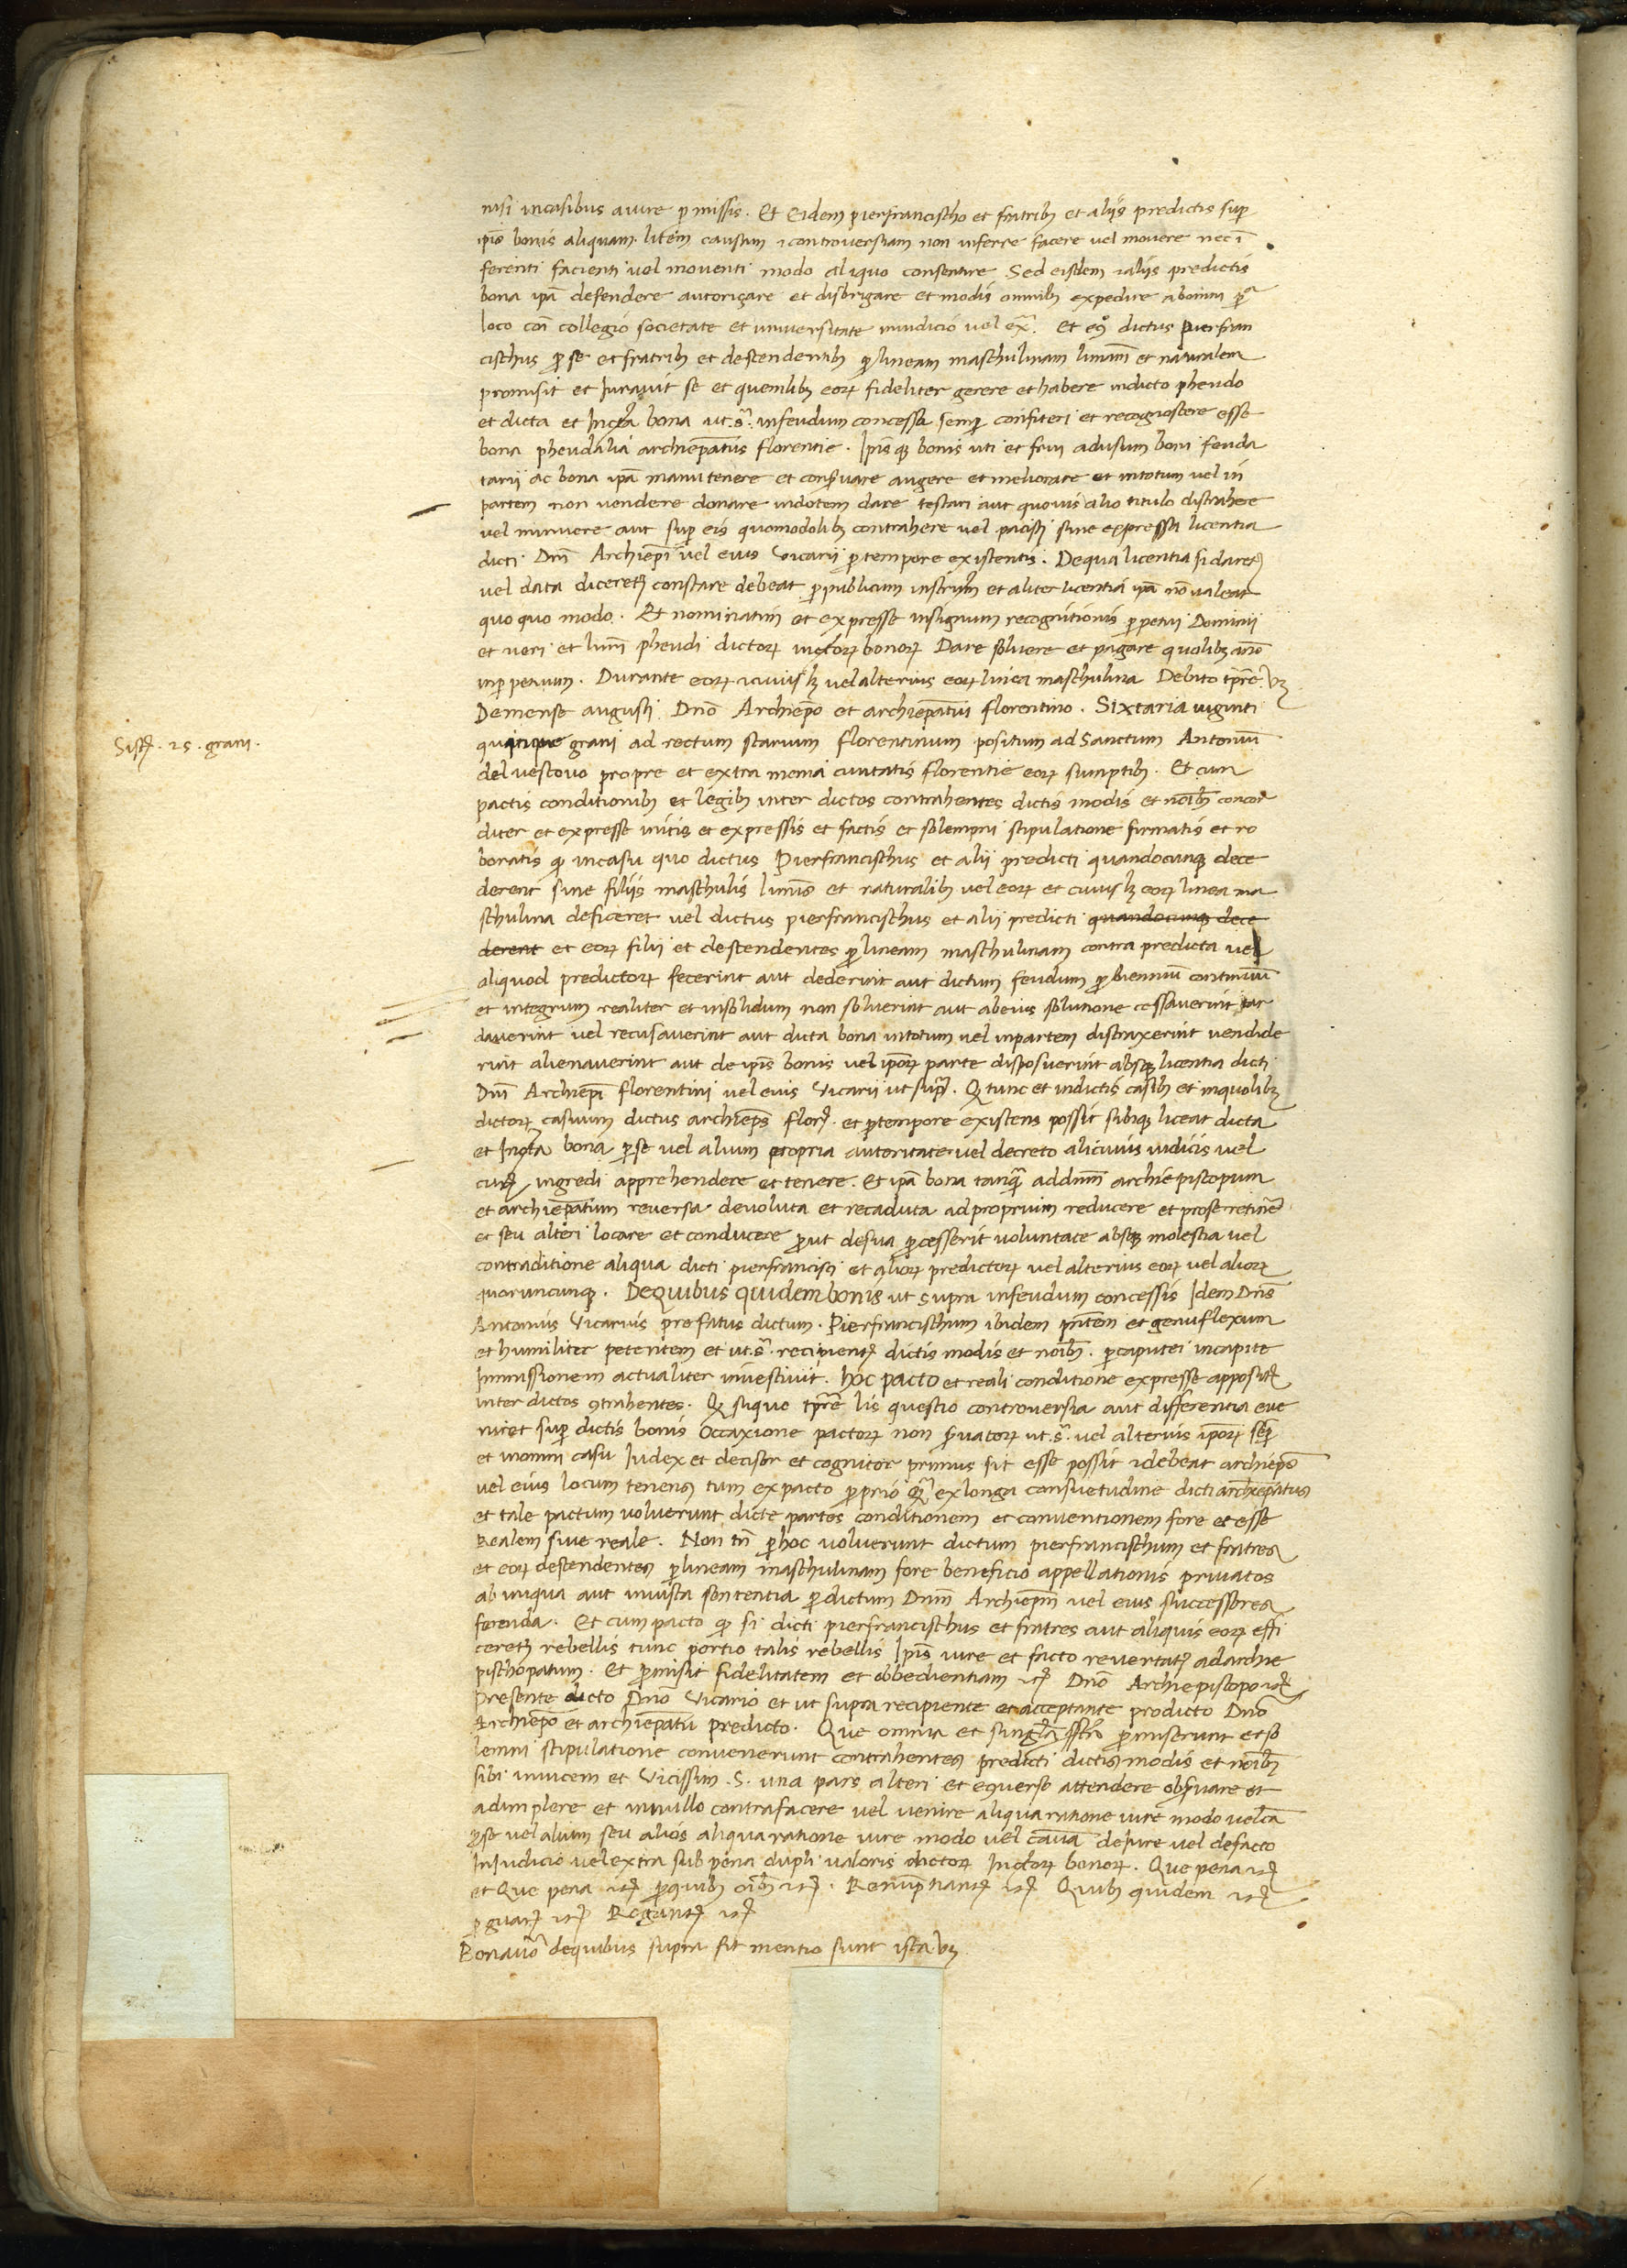 nisi incasibus aiure permissis. Et Eidem pierfrancischo et fratribus et alijs predictis super
ipsis bonis aliquam litem causam et controversiam non inferre facere vel movere nec i
ferenti facienti vel moventi modo aliquo consentire Sed eisdem et aliis predictis
bona ipsa defendere autoriçare et disbrigare et modis omnibus expedire abomni
loco collegio societate et universitate inindicio vel extra. Et dictus pierfran
cischus pro se et fratribus et descendentibus per lineam maschulinam et naturalem
promisit et Iuravit se et quemlibet eorum fideliter gerere et habere indicto pheudo
et dicta et Infrascripta bona ut supra infeudum concessa semper confiteri et recognoscere esse
bona pheudalia archiepatus florentie. Ipsisque bonis uti et frui adusum boni feuda
tarii ac bona ipsa manutenere et conservare augere et meliorare et intotum vel in
partem non vendere donare indotem dare testari aut quovis alio titulo distrahere
vel minuere aut super eis quomodolibet contrahere vel pacisci sine expressa licentia
dicti Dni Archiepi vel eius Vicarii pro tempore existentis. Dequa licentia si daretur
vel data diceretur constare debeat per publicum instrumentum et aliter licentia ipsa non valeat
quo quo modo. Et nominatim et expresse insignum recognitionis perpetui Dominii
et veri et pheudi dictorum infrascriptorum bonorum Dare solvere et pagare quolibet anno
inperpetuum. Durante eorum et cuiuslibet vel alterius eorum linea maschulina Debito tempore vz
Demense augusti Dno Archiepo et archiepatui florentino. Sixtaria viginti
quinque grani ad rectum starium florentinum positum ad Sanctum Antonium
del vescovo prope et extra menia civitatis florentie eorum sumptibus. Et cum
pactis conditionibus et legibus inter dictos contrahentes dictis modis et nominibus concor
diter et expresse initis et expressis et factis et solempni stipulatione firmatis et ro
boratis quod incasu quo dictus Pierfrancischus et alii predicti quandocunque dece
derent sine filiis maschulis et naturalibus vel eorum et cuiuslibet eorum linea ma
schulina deficeret vel dictus pierfrancischus et alii predicti quandocunque dece
derent et eorum filii et descendentes per lineam maschulinam contra predicta vel
aliquod predictorum fecerint aut dederint aut dictum feudum per biennium continuum
et integrum realiter et insolidum non solverint aut abeius solutione cessaverint tar
daverint vel recusaverint aut dicta bona intotum vel inpartem distraxerint vendide
rint alienaverint aut de ipsis bonis vel ipsorum parte disposuerint absque licentia dicti
Dni Archiepi florentini vel eius Vicarii ut supra. Quod tunc et indictis casibus et inquolibet
dictorum casuum dictus archieps flor. et pro tempore existens possit sibique liceat dicta
et Infrascripta bona per se vel alium propria autoritate vel decreto alicuius iudicis vel
curie ingredi apprehendere et tenere. Et ipsa bona tanquam addnum archiepiscopum
et archiepatum reversa devoluta et recaduta adproprium reducere et prose retinere
et seu alteri locare et conducere prout desua processerit voluntate absque molestia vel
contraditione aliqua dicti pierfrancisci et aliorum predictorum vel alterius eorum vel aliorum
quorumcunque. Dequibus quidem bonis ut supra infeudum concessis Idem Dns
Antonius Vicarius prefatus dictum. Pierfrancischum ibidem presentem et genuflexum
et humiliter petentem et ut supra recipientem dictis modis et nominibus. percaputei incapite
Immissionem actualiter investivit. hoc pacto et reali conditione expresse apposita
inter dictos contrahentes. Quod siquo tempore lis questio controversia aut differentia eve
niret super dictis bonis Occaxione pactorum non servatorum ut supra vel alterius ipsorum semper
et inomni casu Iudex et decisor et cognitor primus sit esse possit et debeat archieps
vel eius locum tenens tum expacto proprio quam exlonga consuetudine dicti archiepatus
et tale pactum voluerunt dicte partes conditionem et conventionem fore et esse
Realem sive reale. Non tamen per hoc voluerunt dictum pierfrancischum et fratres
et eorum descendentes per lineam maschulinam fore beneficio appellationis privatos
abiniqua aut iniusta sententia per dictum Dnm Archiepm vel eius successores
ferenda. Et cum pacto quod si dicti pierfrancischus et fratres aut aliquis eorum effi
ceretur rebellis tunc portio talis rebellis Ipsis iure et facto revertatur adarchie
pischopatum. Et promisit fidelitatem et obbedientiam etc Dno Archiepiscopo etc
Presente dicto Dno Vicario et ut supra recipiente et acceptante predicto Dno
Archiepo et archiepatu predicto. Que omnia et singula promiserunt et so
lemni stipulatione convenerunt contrahentes predicti dictis modis et nominibus
sibi invicem et Vicissim .S. una pars alteri et econverso attendere observare et
adimplere et innullo contrafacere vel venire aliqua ratione iure modo vel causa
per se vel alium seu alios aliqua ratione iure modo vel causa deiure vel defacto
InIudicio vel extra sub pena dupli valoris dictorum Infrascriptorum bonorum. Que pena etc
et Que pena etc pro quibus omnibus etc. Renumptiantes etc Quibus quidem etc
per guar. etc Rogantes etc
Bona vero dequibus supra fit mentio sunt ista vz
Sist. 25. grani.